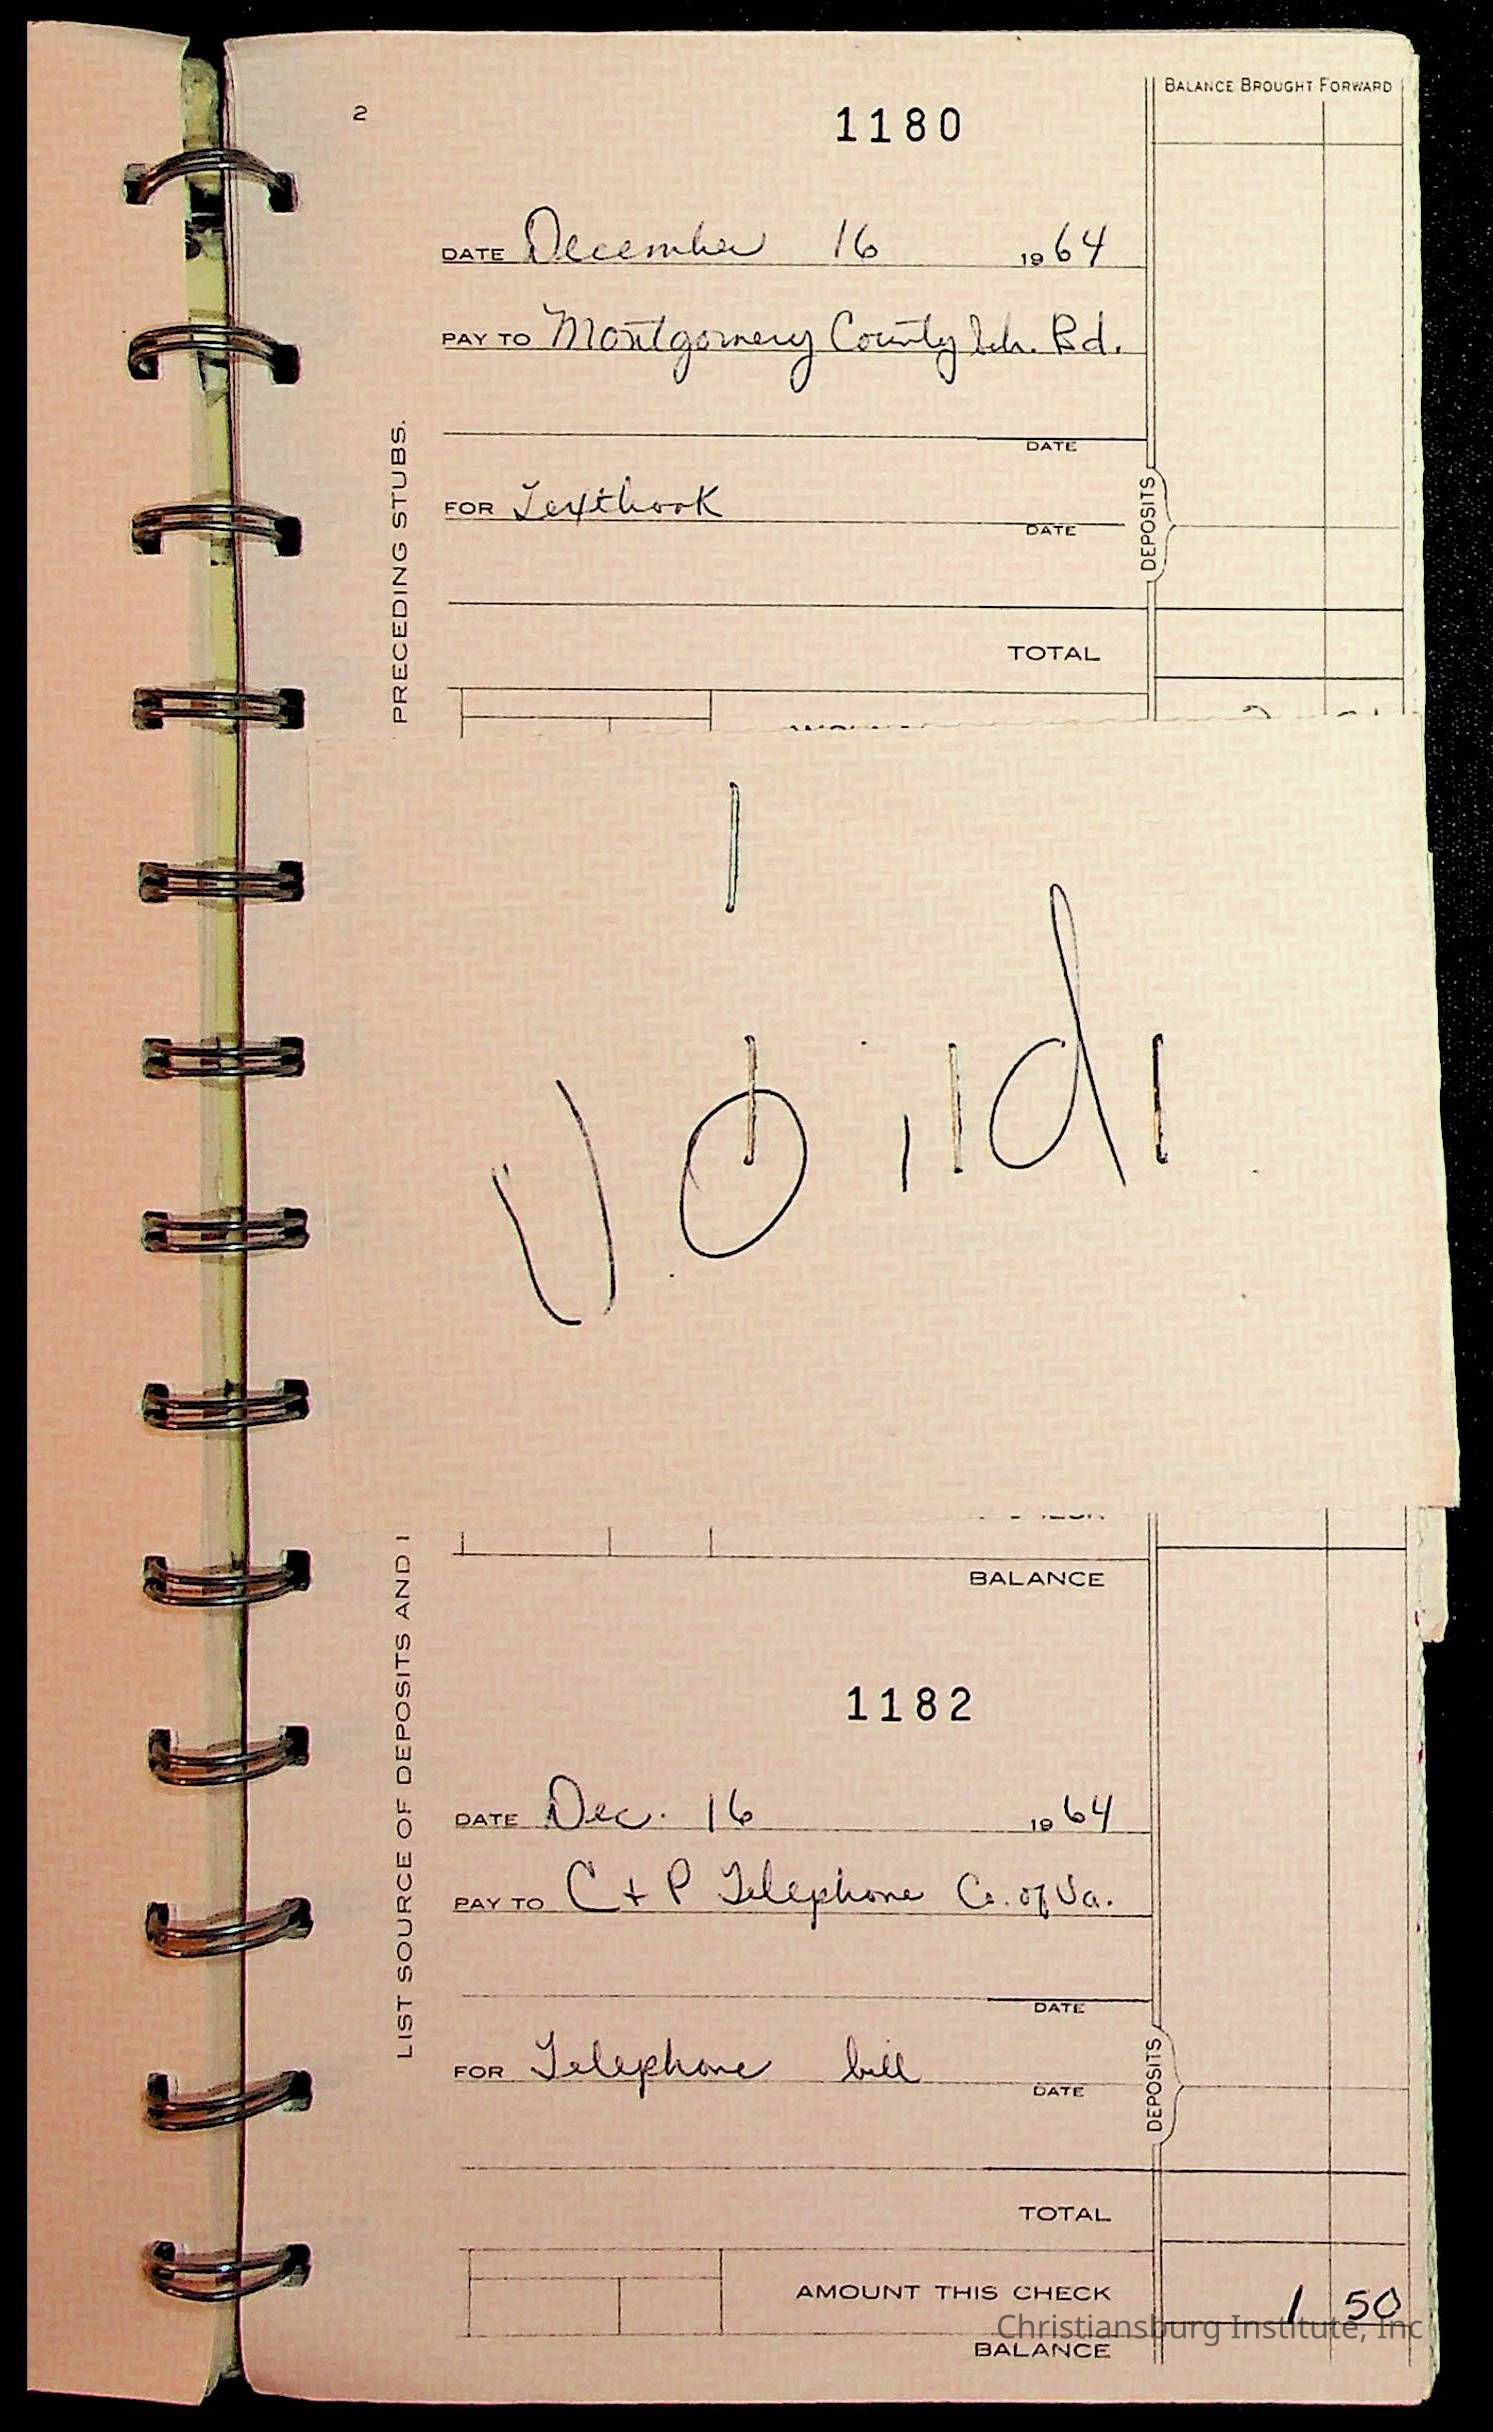 2
BALANCE BROUGHT FORWARD
1180
DATE December 16 1964
PAY TO Montgomery County Sch. Bd.
DATE
FOR Textbook
DATE
DEPOSITS
TOTAL
PRECEDING STUBS.
Void
BALANCE
LIST SOURCE OF DEPOSITS AND
1182
DATE Dec. 16 1964
PAY TO C + P Telephone Co. of Va.
DATE
FOR Telephone bill
DATE
DEPOSITS
TOTAL
AMOUNT THIS CHECK 1 50
Christiansburg Institute, Inc
BALANCE